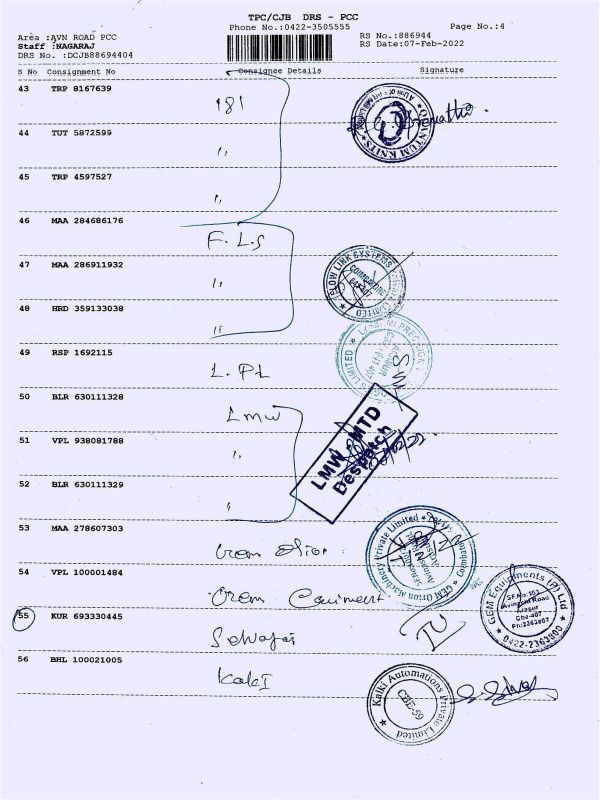 TPC/CJB DRS - PCC
Phone No.:0422-3505555 Page No.:4
Area :AVN ROAD PCC RS No.:886944
Staff :NAGARAJ RS Date:07-Feb-2022
DRS No. :DCJB88694404
S No Consignment No Consignee Details Signature
43 TRP 8167639
181
QUANTUM KNITS
44 TUT 5872599
"
45 TRP 4597527
"
46 MAA 284686176
F.L.S
47 MAA 286911932
"
FLOW LINK SYSTEMS PRIVATE LIMITED
48 HRD 359133038
"
49 RSP 1692115
L.PL
50 BLR 630111328
Lmw
LMW - MTD
Despatch
51 VPL 938081788
"
52 BLR 630111329
"
53 MAA 278607303
GEM Orion Machinery Private Limited
54 VPL 100001484
GEM Equipments (P) Ltd
SF.No. 103
Avinashi Road
Arasur
Cbe-407
Ph:2363807
0422-2363800
55 KUR 693330445
56 BHL 100021005
KalkI
Kalki Automations Private Limited
CBE-59